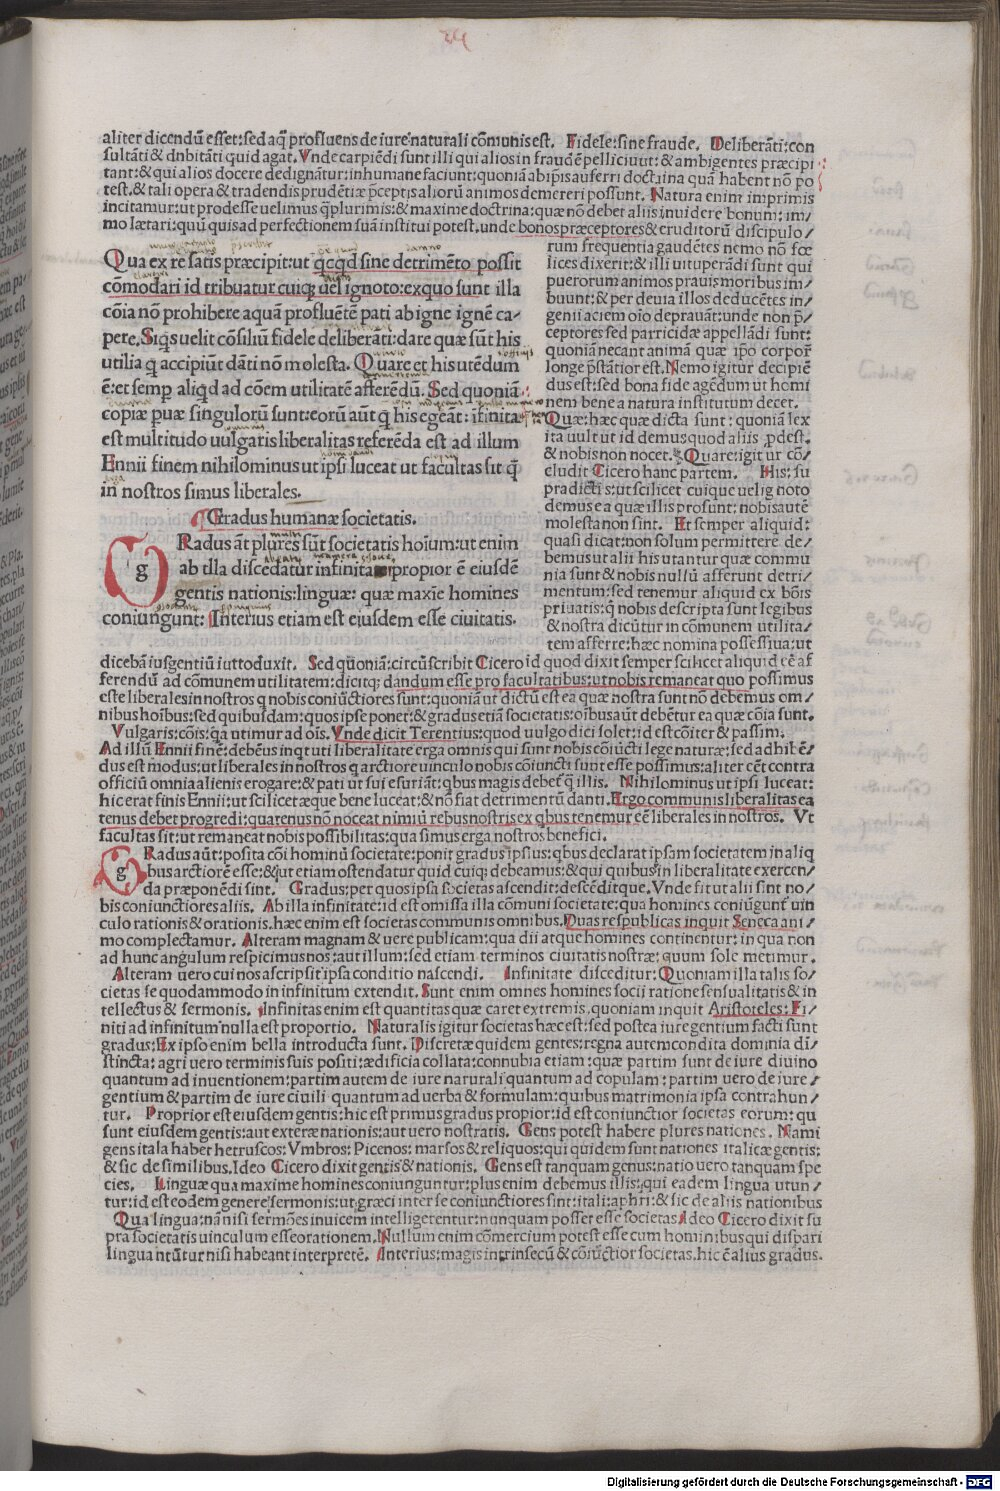 24
aliter dicendū esset: sed aq̄ profluens de iure naturali cōmunis est. Fidele: sine fraude. Deliberāti: con
sultāti & dnbitāti quid agat. Vnde carpiēdi sunt illi qui alios in fraudē pelliciuut: & ambigentes præcipi
tant: & qui alios docere dedignātur: inhumane faciunt: quoniā ab ip̄is auferri doctrina quā habent nō po
test. & tali opera & tradendis prudētiæ p̄ceptis aliorū animos demereri possunt. Natura enim imprimis
incitamur: ut prodesse uelimus q̄plurimis: & maxime doctrina: quæ nō debet aliis inuidere bonum: im/
mo lætari: quū quis ad perfectionem suā institui potest. unde bonos præceptores & eruditorū discipulo/
Qua ex re satis præcipit: ut qcqd sine detrimēto possit
cōmodari id tribuatur cuiq; uel ignoto: ex quo sunt illa
cōia nō prohibere aquā profluētē pati ab igne ignē ca-
pere. Siq̄s uelit cōsiliū fidele deliberati: dare quæ sūt his
utilia q̄ accipiūt dāti nō molesta. Quare et his utēdum
ē: et semp aliqd ad cōem utilitatē afferēdū. Sed quoniā
copiæ puæ singulorū sunt: eorū aūt q̄ his egeāt: ifinita
est multitudo uulgaris liberalitas referēda est ad illum
Ennii finem nihilominus ut ipsi luceat ut facultas sit q̄
in nostros simus liberales.
Gradus humanæ societatis.
g Radus āt plures sūt societatis hoīum: ut enim
ab illa discedatur infinita propior ē eiusdē
gentis nationis: linguæ: quæ maxie homines
coniungunt: Interius etiam est eiusdem esse ciuitatis.
rum frequentia gaudētes nemo nō fœ
lices dixerit: & illi uituperādi sunt qui
puerorum animos prauis moribus im/
buunt: & per deuia illos deducētes in/
genii aciem oīo deprauāt: unde non p̄/
ceptores sed parricidæ appellādi sunt:
quoniā necant animā quæ ip̄o corpor̄
longe p̄stātior est. Nemo igitur decipiē
dus est: sed bona fide agēdum ut homi
nem bene a natura institutum decet.
Quæ: hæc quæ dicta sunt: quoniā lex
ita uult ut id demus quod aliis pdest.
& nobis non nocet. Quare igitur cō/
cludit Cicero hanc partem. His: su
pradictis: ut scilicet cuique uel ig noto
demus ea quæ illis prosunt: nobis autē
molesta non sint. Et semper aliquid:
quasi dicat: non solum permittere de/
bemus ut alii his utantur quæ commu
nia sunt & nobis nullū afferunt detri/
mentum: sed tenemur aliquid ex bōis
priuatis: q̄ nobis descripta sunt legibus
& nostra dicūtur in cōmunem utilita/
tem afferre: hæc nomina possessiua: ut
dicebā ius gentiū iuttoduxit. Sed qūoniā: circūscribit Cicero id quod dixit semper scilicet aliquid eē af
ferendū ad cōmunem utilitatem: dicitq; dandum esse pro facultatibus: ut nobis remaneat quo possimus
este liberales in nostros q nobis coniūctiores sunt: quoniā ut dictū est ea quæ nostra sunt nō debemus om/
nibus hoībus: sed quibusdam: quos ipse ponet: & gradus etiā societatis: oībus aūt debētur ea quæ cōia sunt.
Vulgaris: cōis: q̄a utimur ad oīs. Vnde dicit Terentius: quod uulgo dici solet: id est cōiter & passim.
Ad illū Ennii finē: debēus inqt uti liberalitate erga omnis qui sunt nobis cōiūcti lege naturæ: sed adhibē/
dus est modus: ut liberales in nostros q arctiore uinculo nobis cōiuncti sunt esse possimus: aliter cēt contra
officiū omnia alienis erogare: & pati ut sui esuriāt: qbus magis debet̄ q̄ illis. Nihilominus ut ipsi luceat:
hic erat finis Ennii: ut scilicet æque bene luceat: & nō fiat detrimentū danti. Ergo communis liberalitas ea
tenus debet progredi: quarenus nō noceat nimiū rebus nostris ex qbus tenemur eē liberales in nostros. Vt
facultas sit: ut remaneat nobis possibilitas: qua simus erga nostros benefici.
g Radus aūt: posita cōi hominū societate: ponit gradus ipsius: qbus declarat ipsam societatem in aliq
bus arctiorē esse: & ut etiam ostendatur quid cuiq; debeamus: & qui quibus in liberalitate exercen/
da præponēdi sint. Gradus: per quos ipsa societas ascendit: descēditque. Vnde fit ut alii sint no/
bis coniunctiores aliis. Ab illa infinitate: id est omissa illa cōmuni societate: qua homines coniūgunt̄ uin
culo rationis & orationis. hæc enim est societas communis omnibus. Duas respublicas inquit Seneca ani/
mo complectamur. Alteram magnam & uere publicam: qua dii atque homines continentur: in qua non
ad hunc angulum respicimus nos: aut illum: sed etiam terminos ciuitatis nostræ: quum sole metimur.
Alteram uero cui nos ascripsit ipsa conditio nascendi. Infinitate disceditur: Quoniam illa talis so/
cietas se quodammodo in infinitum extendit. Sunt enim omnes homines socii ratione sensualitatis & in
tellectus & sermonis. Infinitas enim est quantitas quæ caret extremis. quoniam inquit Aristoteles: Fi/
niti ad infinitum nulla est proportio. Naturalis igitur societas hæc est: sed postea iure gentium facti sunt
gradus: Ex ipso enim bella introducta sunt. Discretæ quidem gentes: regna autem condita dominia di/
stincta: agri uero terminis suis positi: ædificia collata: connubia etiam: quæ partim sunt de iure diuino
quantum ad inuentionem: partim autem de iure naturali quantum ad copulam: partim uero de iure/
gentium & partim de iure ciuili quantum ad uerba & formulam: quibus matrimonia ipsa contrahun/
tur. Proprior est eiusdem gentis: hic est primus gradus propior: id est coniunctior societas eorum: qu
sunt eiusdem gentis: aut exteræ nationis: aut uero nostratis. Gens potest habere plures nationes. Nam i
gens itala haber hetruscos: Vmbros: Picenos: marsos & reliquos: qui quidem sunt nationes italicæ gentis:
& sic de similibus. Ideo Cicero dixit gentis & nationis. Gens est tanquam genus: natio uero tanquam spe
cies. Linguæ qua maxime homines coniunguntur: plus enim debemus illis: qui eadem lingua utun/
tur: id est eodem genere sermonis: ut græci inter se coniunctiores sint: itali: aphri: & sic de aliis nationibus
Qua lingua: nā nisi sermōes inuicem intelligerentur: nunquam posset esse societas Ideo Cicero dixit su
pra societatis uinculum esse orationem. Nullum enim cōmercium potest esse cum hominibus qui dispari
lingua ntūtur nisi habeant interpretē. Interius: magis intrinsecū & cōiūctior societas. hic ē alius gradus.
Digitalisierung gefördert durch die Deutsche Forschungsgemeinschaft - DFG